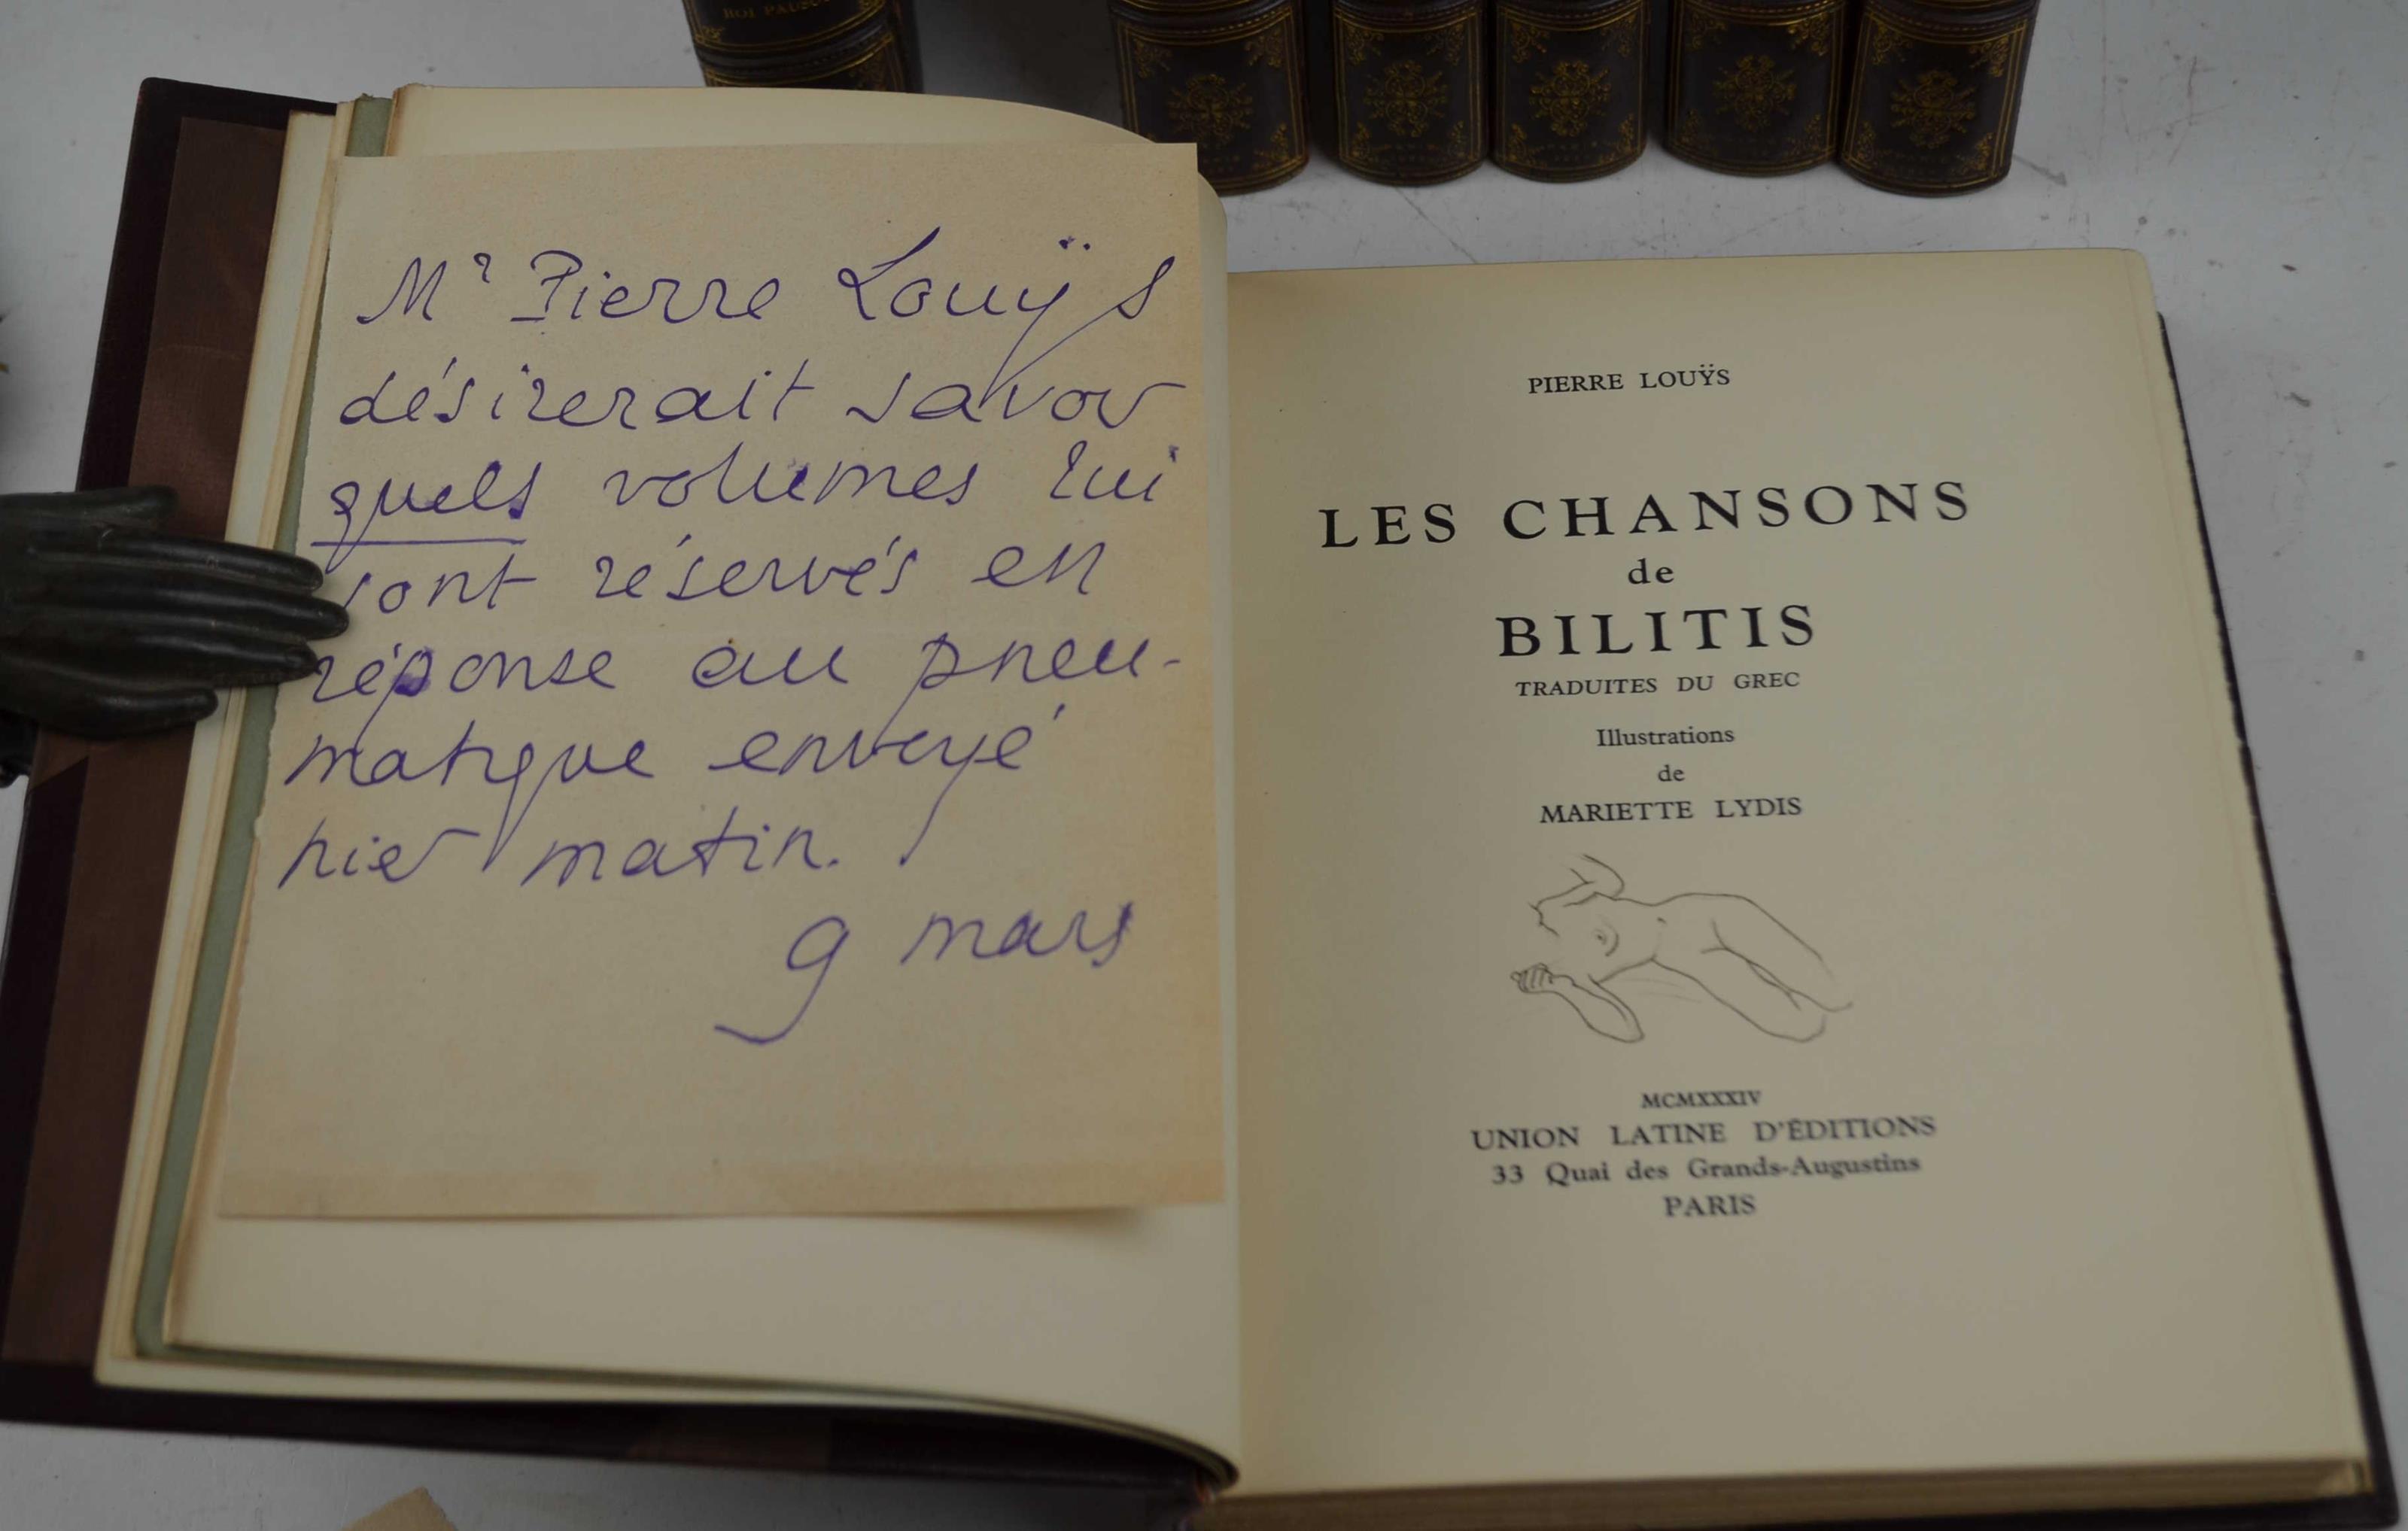 ROI PAUSOLE
Mr Pierre Louÿs
désirerait savoir
quels volumes lui
sont réservés en
réponse au pneu-
matique envoyé
hier matin.
9 mars
PIERRE LOUŸS
LES CHANSONS
de
BILITIS
TRADUITES DU GREC
Illustrations
de
MARIETTE LYDIS
MCMXXXIV
UNION LATINE D'ÉDITIONS
33 Quai des Grands-Augustins
PARIS